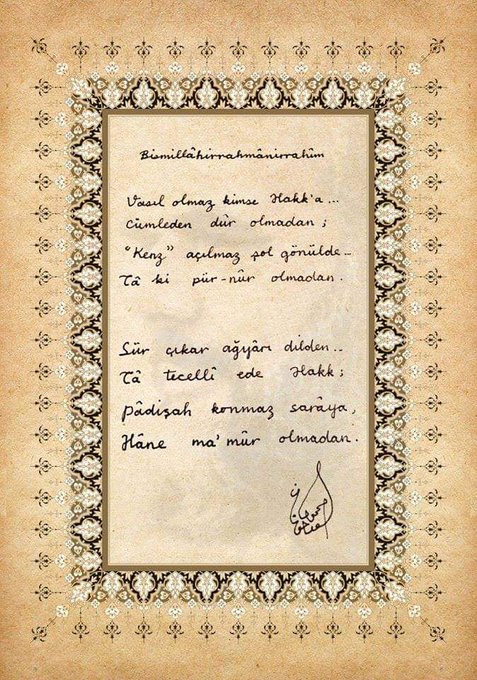 Bismillâhirrahmânirrahîm
Vasıl olmaz kimse Hakk'a...
Cümleden dûr olmadan;
"Kenz" açılmaz şol gönülde...
Tâ ki pür-nûr olmadan.
Sür çıkar ağyârı dilden...
Tâ tecellî ede Hakk;
Pâdişah konmaz sarâya,
Hâne ma'mûr olmadan.